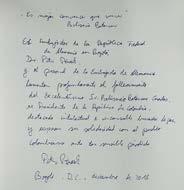 "Es mejor convencer que vencer"
Belisario Betancur
El Embajador de la República Federal
de Alemania en Bogotá
Dr. Peter Ptassek
y el personal de la Embajada de Alemania
lamentan profundamente el fallecimiento
del Excelentísimo Sr. Belisario Betancur Cuartas
ex Presidente de la República de Colombia,
destacado intelectual e incansable buscador de paz,
y expresan su solidaridad con el pueblo
colombiano ante tan sensible pérdida
Bogotá D.C., diciembre de 2018